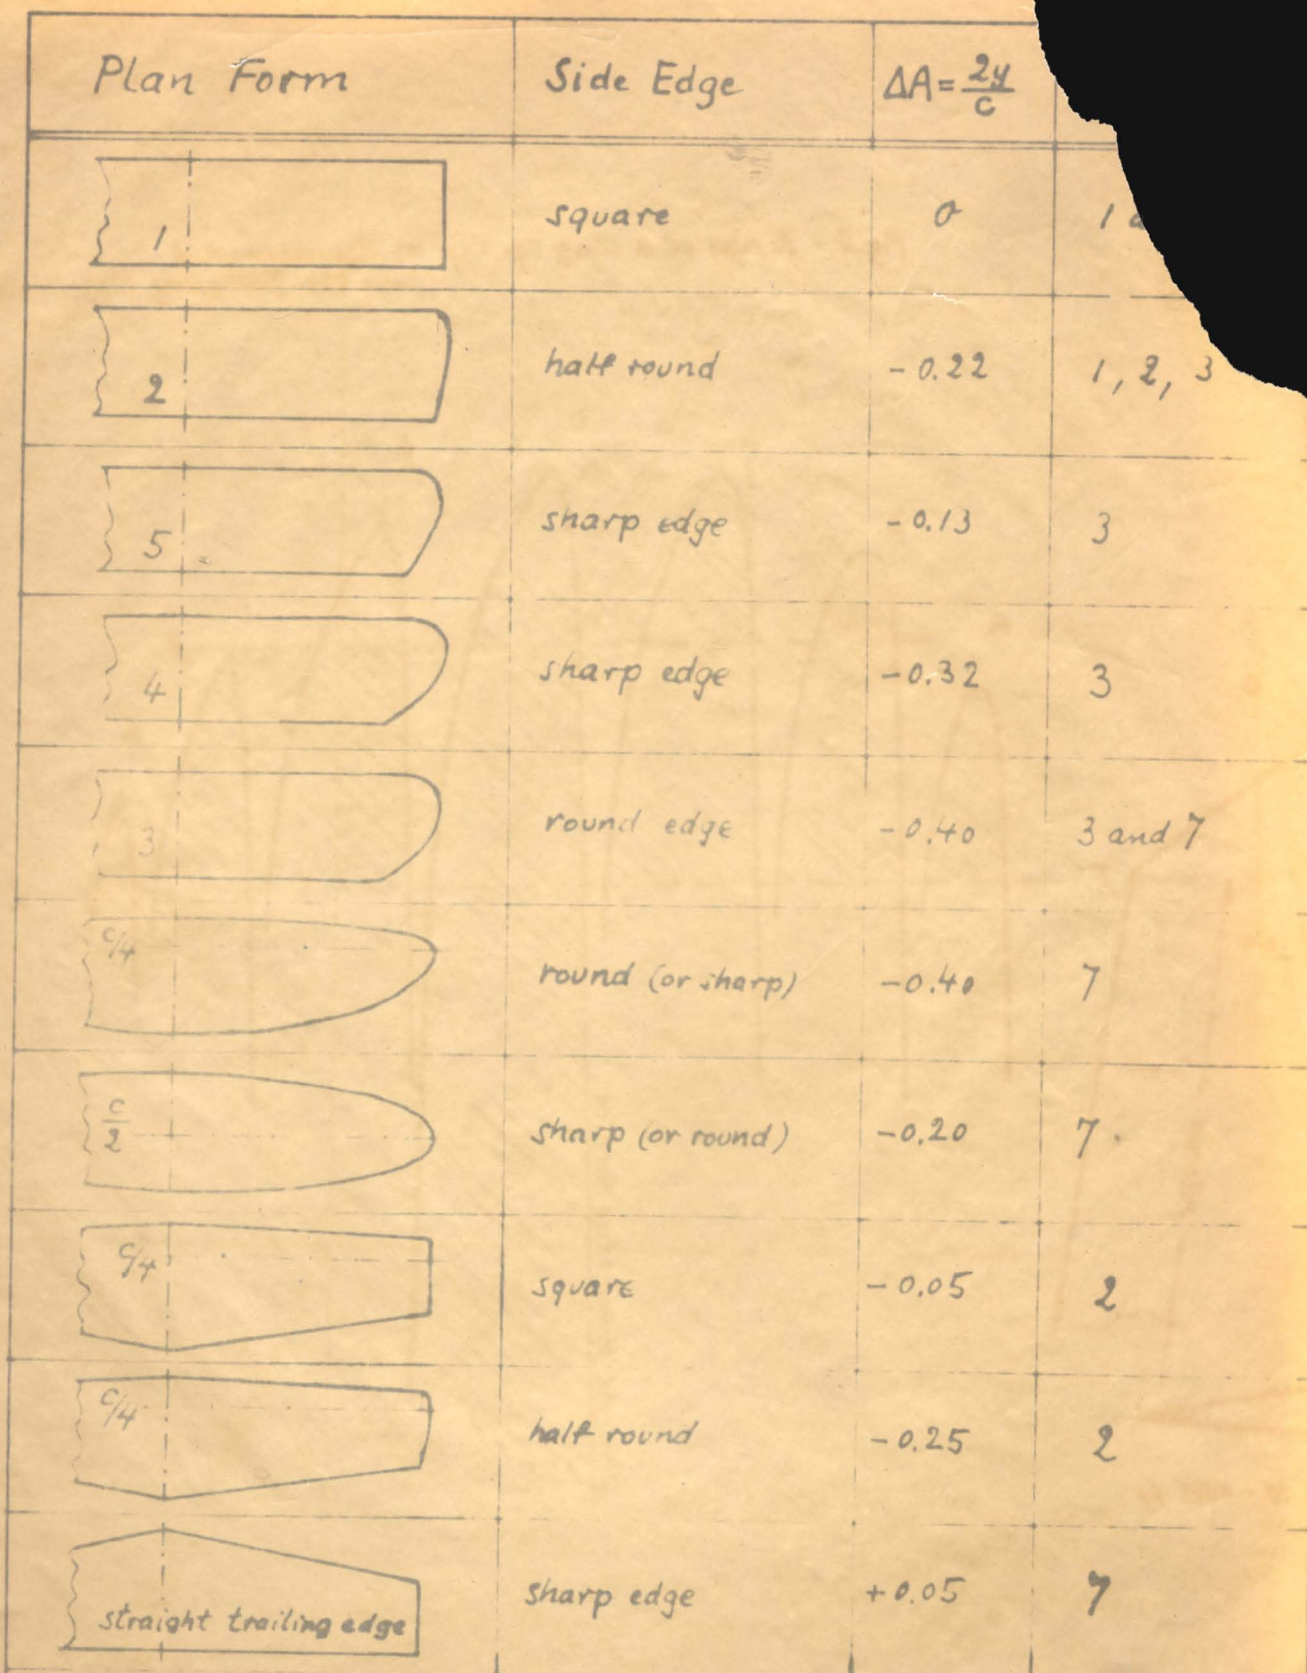 Plan Form Side Edge ΔA = 2y/c
1 square 0 1
2 half round -0.22 1, 2, 3
5 sharp edge -0.13 3
4 sharp edge -0.32 3
3 round edge -0.40 3 and 7
c/4 round (or sharp) -0.40 7
c/2 sharp (or round) -0.20 7
c/4 square -0.05 2
c/4 half round -0.25 2
straight trailing edge sharp edge +0.05 7